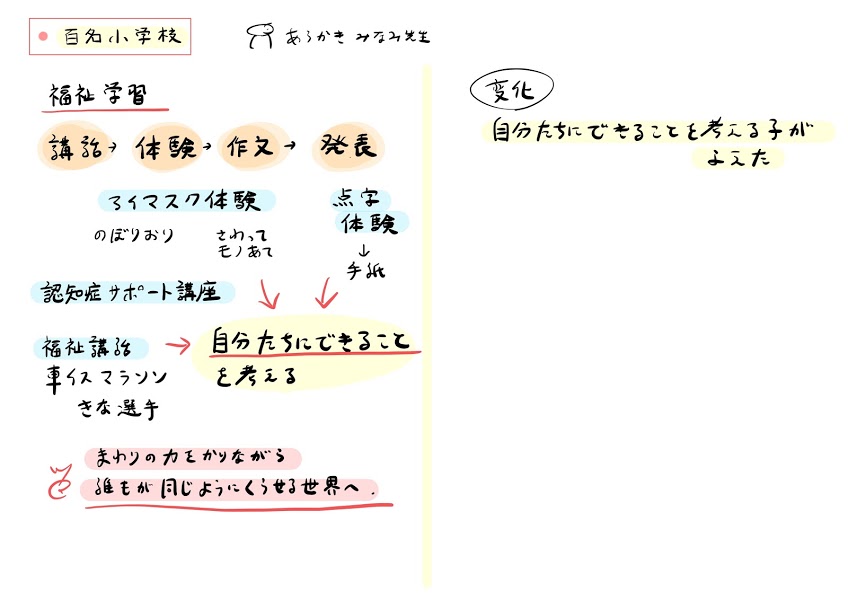 百名小学校
あらかき みなみ先生
福祉学習
講話→ 体験→ 作文→ 発表
アイマスク体験
のぼりおり
さわって
モノあて
点字
体験
↓
手紙
認知症サポート講座
福祉講話
車イスマラソン
きな選手
→ 自分たちにできること
を考える
まわりの力をかりながら
誰もが同じようにくらせる世界へ.
変化
自分たちにできることを考える子が
ふえた